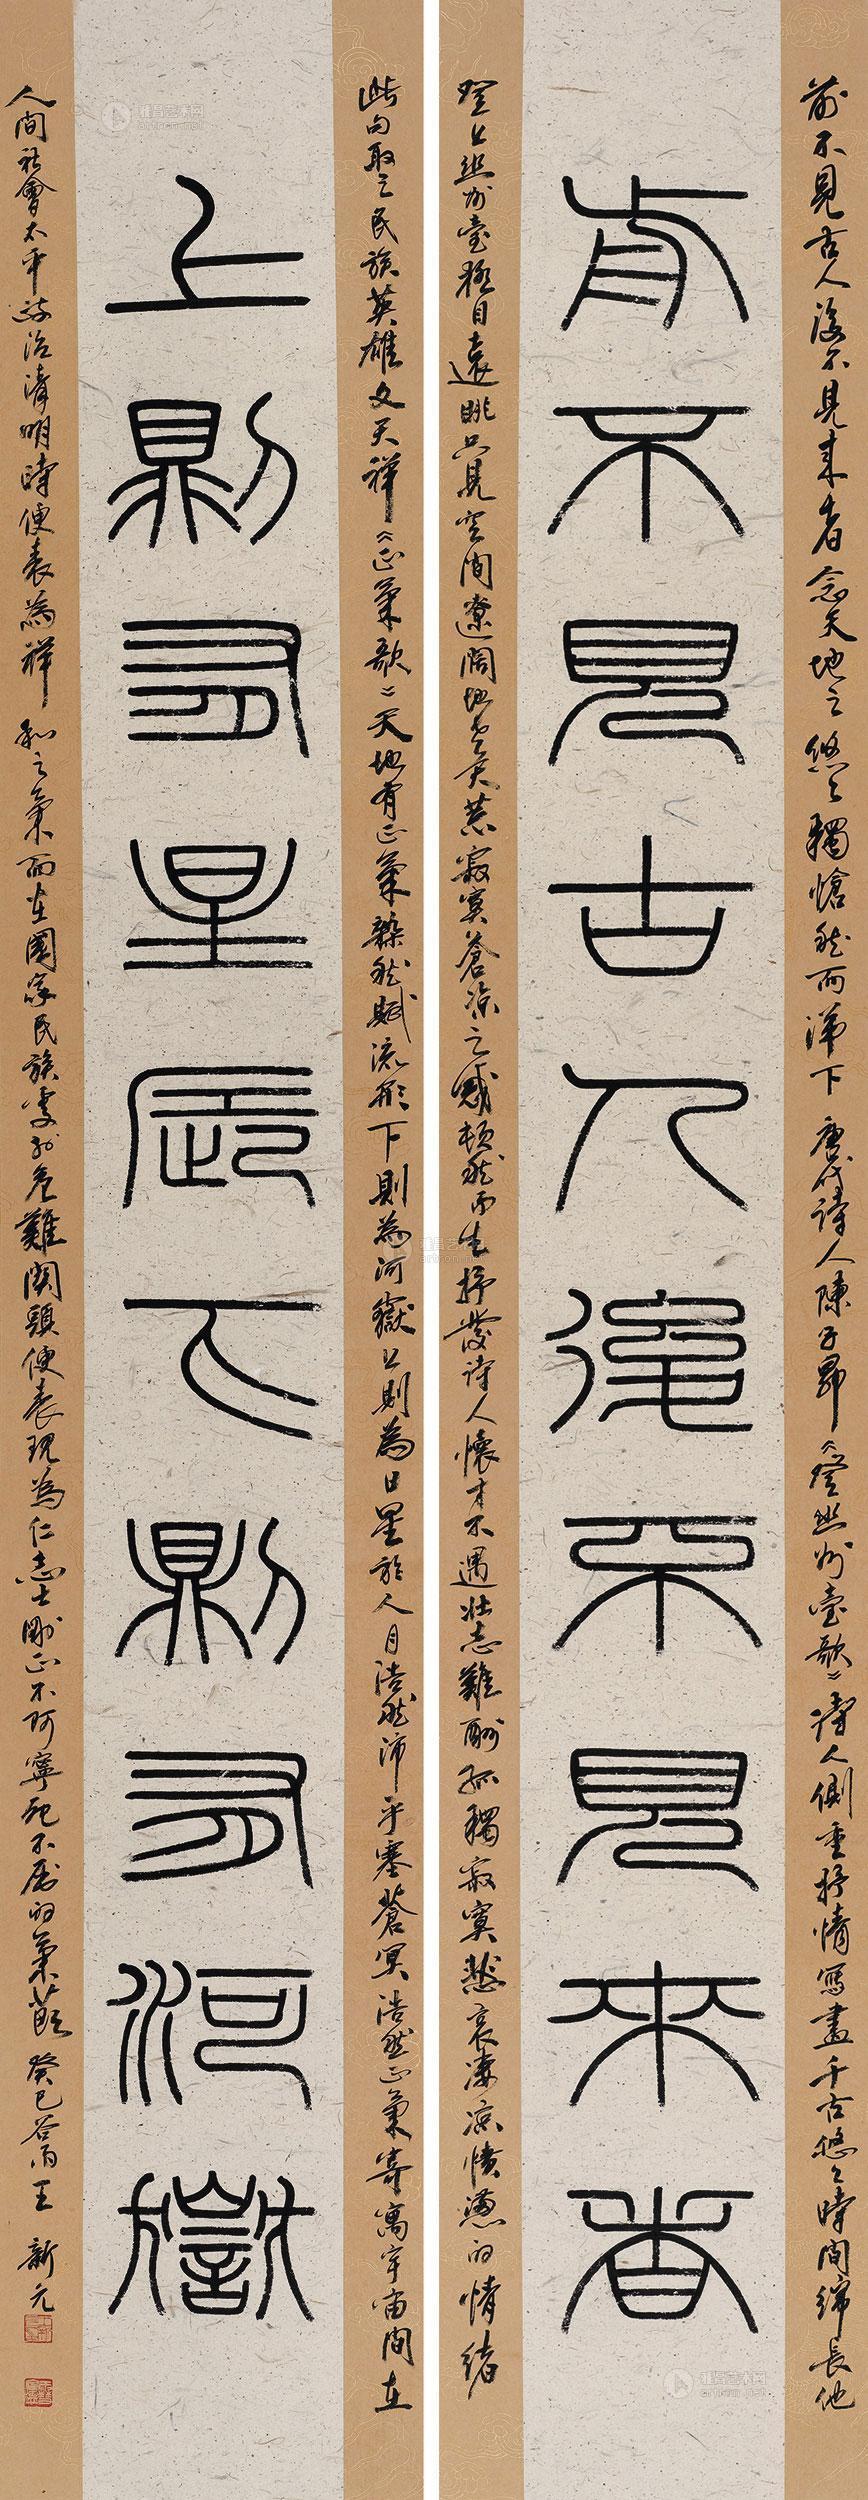 前不見古人後不見來者
上則為星辰下則為河嶽
前不見古人後不見來者念天地之悠々獨愴然而涕下 唐代詩人陳子昂《登幽州臺歌》詩人側重抒情寫盡千古悠々時間綿長他
登上幽州臺極目遠眺只見空間遼闊地老天荒寂寞蒼涼之感頓然而生抒發詩人懷才不遇壯志難酬孤獨寂寞悲哀淒涼憤懣的情緒
此句取之民族英雄文天祥《正氣歌》天地有正氣雜然賦流形下則為河嶽上則為日星於人曰浩然沛乎塞蒼冥浩然正氣寄寓宇宙間在
人間社會太平政治清明時便表為祥和之氣而在國家民族處於危難關頭便表現為仁志士剛正不阿寧死不屈的氣節 癸巳谷雨王新元
雅昌艺术网
artron.net